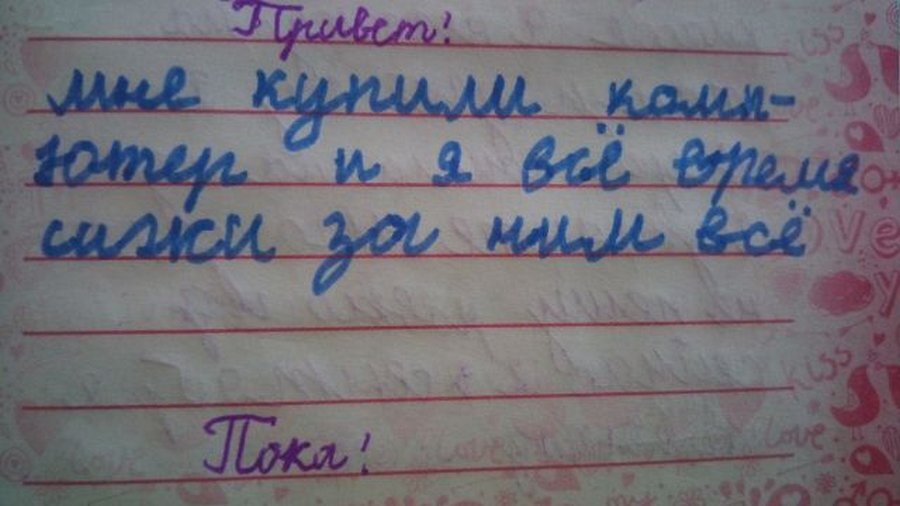 Привет!
мне купили комп-
ютер и я всё время
сижи за ним всё
Пока!